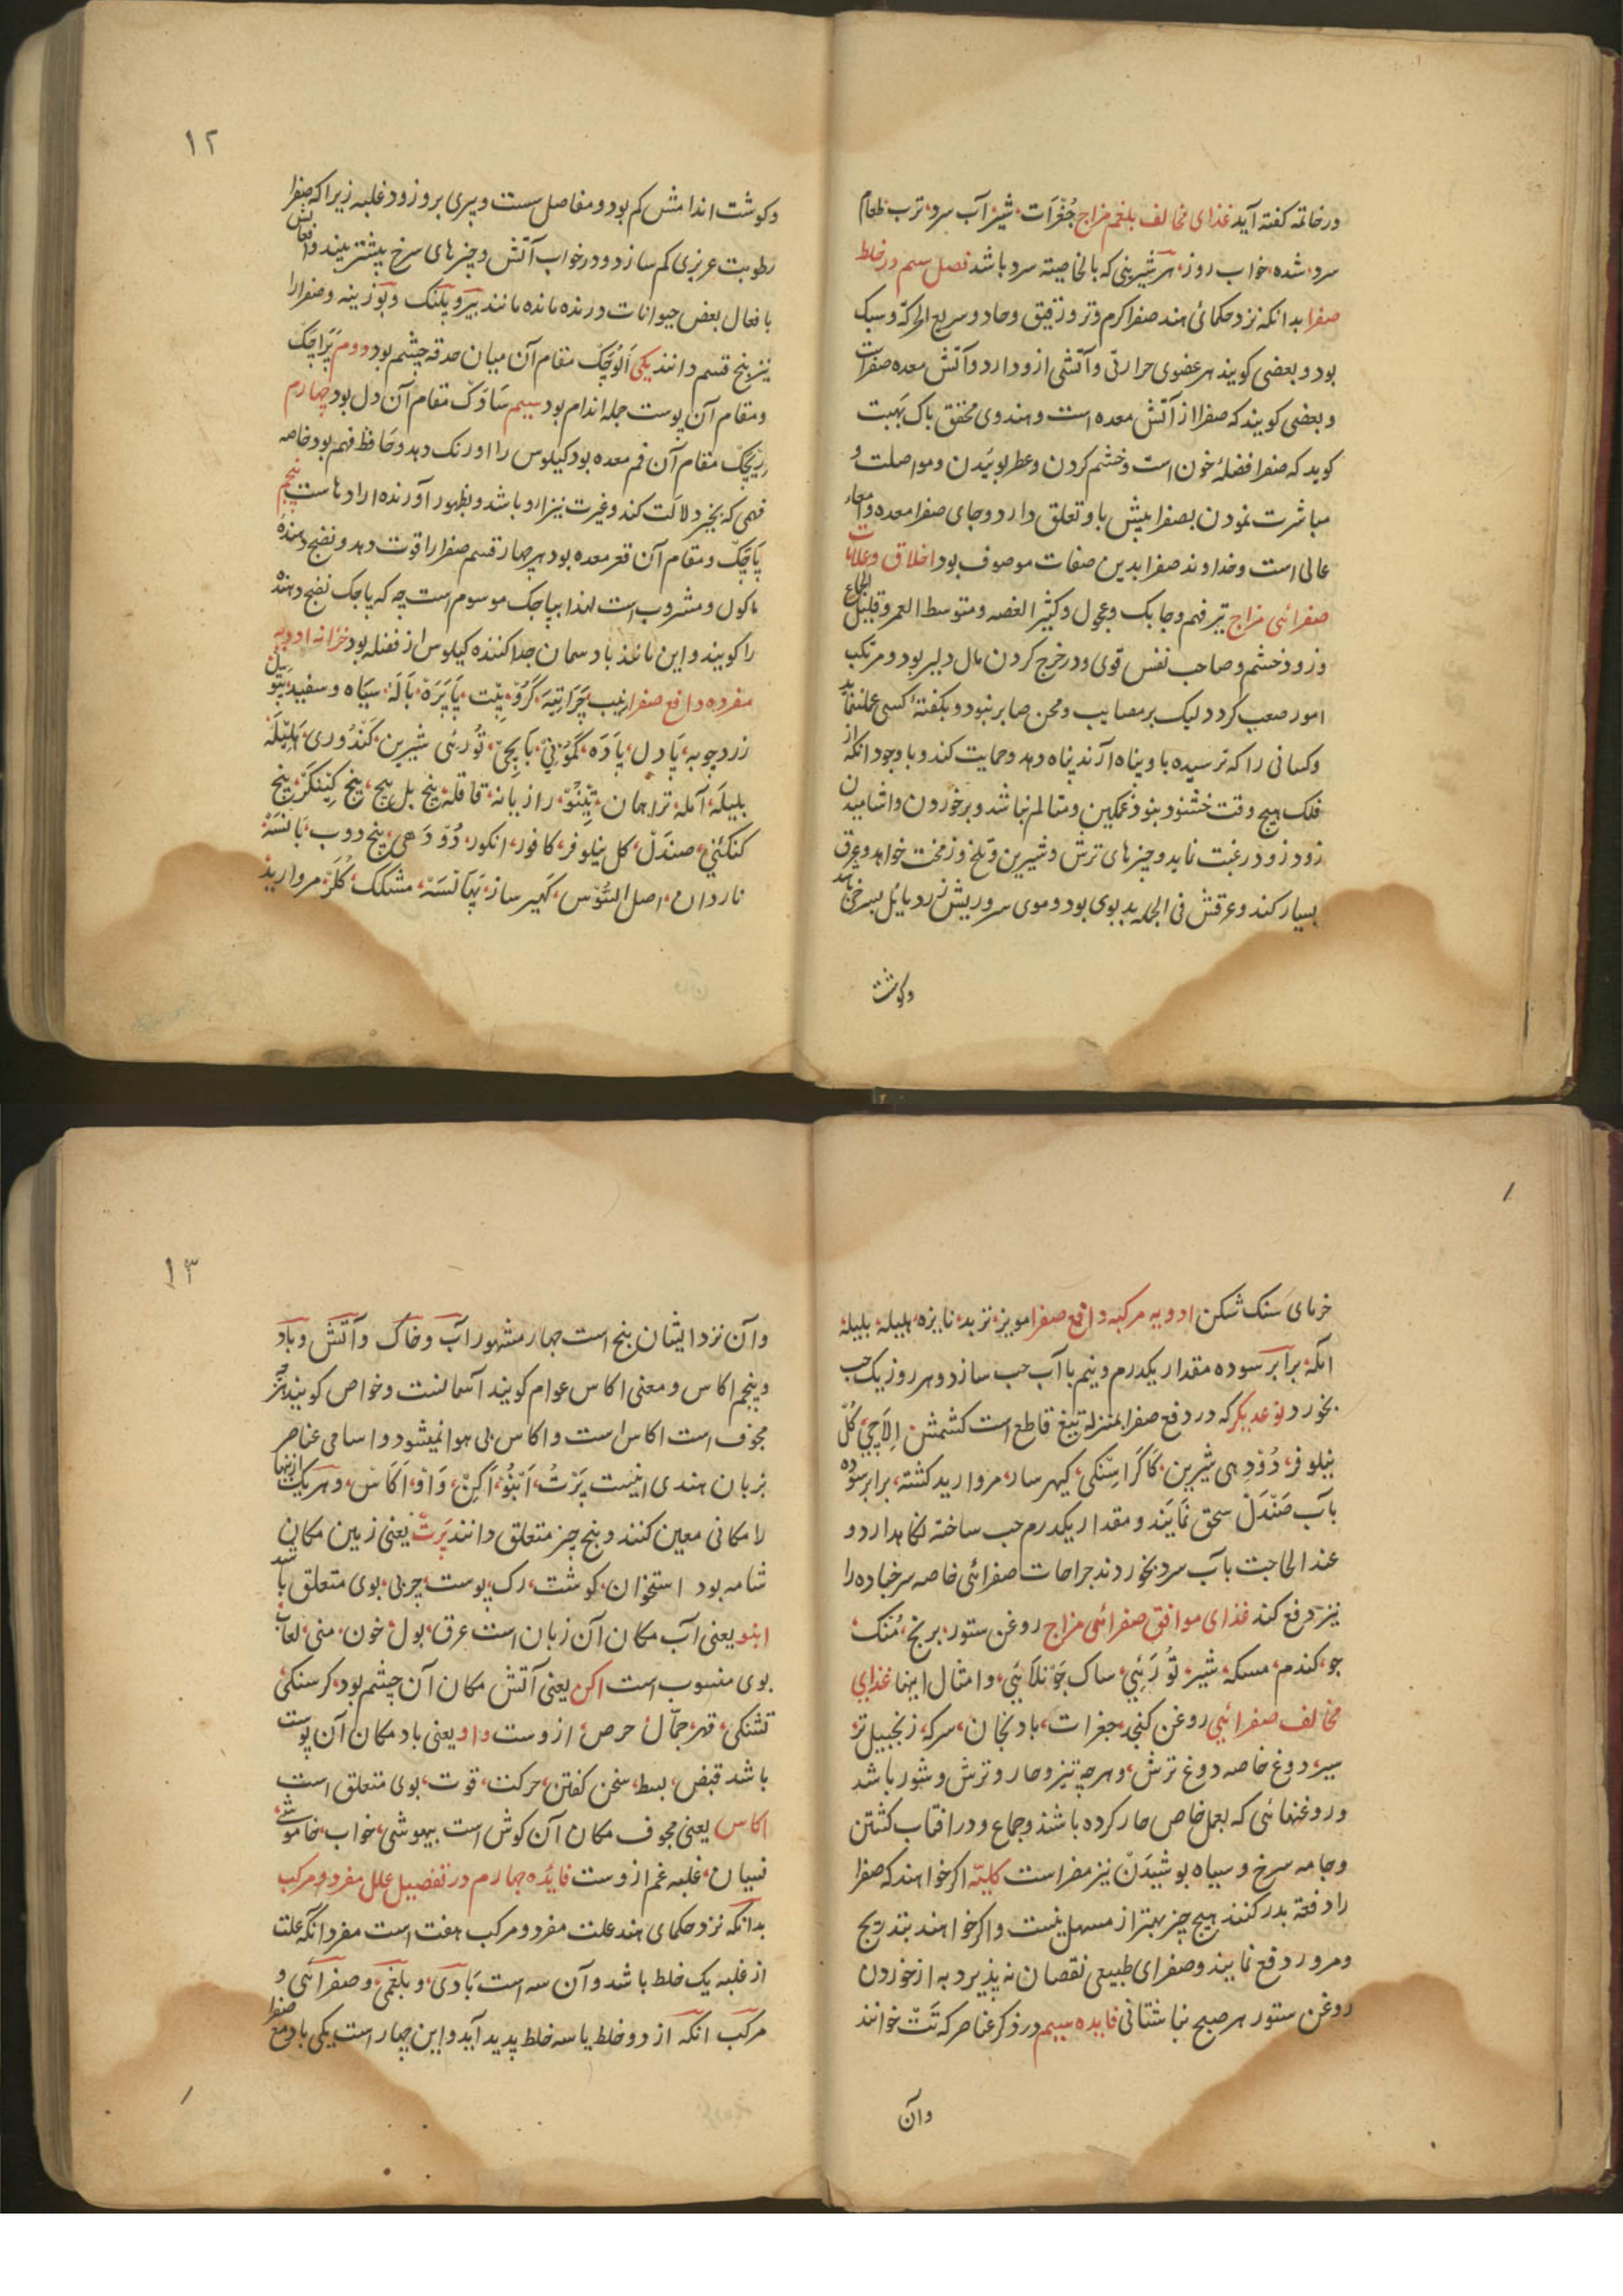 در خاتمه کفته آید غذای مخالف بلغم مزاج جُغرَات شیر آب سرد ترب طعام
سرد شده خواب روز هر شیرینی که بالخاصیته سرد باشد فصل سیم در خلط
صفرا بدانکه نزد حکمائ هند صفرا کرم و تر و رقیق و حاد و سریع الحرکة و سبک
بود و بعضی کویند هر عضوی حرارتی و آتشی ازو دارد و آتش معده صفراست
و بعضی کویند که صفرا از آتش معده است و هندوی محقق باک بهبت
کوید که صفرا فضلهٔ خون است و خشم کردن و عطر بوئیدن و مواصلت و
مباشرت نمودن بصفرا بیش باو تعلق دارد و جای صفرا معده و امعاء
عالی است و خداوند صفرا بدین صفات موصوف بود اخلاق و علامات
صفرائی مزاج تیز فهم و جابک و عجول و کثیر الغصه و متوسط العمر و قلیل الجماع
و زود خشم و صاحب نفس قوی و در خرج کردن مال دلیر بود و مرتکب
امور صعب کردد لیک بر مصایب و محن صابر نبود و بکفتهٔ کسی عمل ننماید
و کسانی را که ترسیده باو پناه آرند پناه دهد و حمایت کند و با وجود انکه از
فلک هیچ وقت خشنود نبود غمکین و متالم نباشد و بر خوردن و اشامیدن
زود زود رغبت نماید و چیزهای ترش و شیرین و تلخ و زمخت خواهد و عرق
بسیار کند و عرقش فی الجمله بدبوی بود و موی سر و ریش زرد مائل بسرخی باشد
وکوشت
۱۲
وکوشت اندامش کم بود و مفاصل سست و پیری برو زود غلبه زیرا که صفرا
رطوبت غریزی کم سازد و در خواب آتش و چیزهای سرخ بیشتر بیند و افعالش
بافعال بعض حیوانات درنده مانده مانند ببر و پلنک و بوزینه و صفرا را
نیز پنج قسم دانند یکی اَلُوچَک مقام آن میان حدقه چشم بود دووم بَراجَک
و مقام آن پوست جمله اندام بود سیم سَادَک مقام آن دل بود چهارم
رِیچَک مقام آن فم معده بود کیلوس را او رنک دهد و حافظ فهم بود خاصه
فهمی که بخیر دلالت کند و غیرت نیز ازو باشد و بظهور آورنده ارادهاست پنجم
پَاچَک و مقام آن قعر معده بود هر چهار قسم صفرا را قوت دهد و نضج دهنده
ماکول و مشروب است لهذا بپاچک موسوم است چه که پاچک نضج دهنده
را کویند و این مانند باد سمان جدا کننده کیلوس از فضله بود خزانه ادویه
مفرده دافع صفرا نیب چَرَایتَه کَرُو پِت پَاپَرَه بَالَه سیاه و سفید
زردچوبه پَادل پَادَه کَمُونِی بَاپچِی تُورئی شیرین کَندُوری هَلِیلَه
بلیله آمله تراهمان رازیانه قاقله بیخ بل بیخ بیخ
کنکنی صندل کل نیلوفر کافور انکور دُودَهی بیخ دوب بَانسَه
ناردان اصل السُوس کهیر ساز مشکک مروارید
۱
خرمای سنک شکن ادویه مرکبه دافع صفرا مویز تربد نایزه هلیله بلیله
امله برابر سوده مقدار یکدرم و نیم با آب حب سازد و هر روز یک حب
بخورد نوعدیکر که در دفع صفرا بمنزله تیغ قاطع است کشمش اِلَاچی کُل
نیلوفر دُودهی شیرین کَاکَرَاسِنکی کیهر سار مروارید کشته برابر سوده
بآب صَندَل سحق نمایَند و مقدار یکدرم حب ساخته نکاهدارد و
عند الحاجت بآب سرد بخورد ند جراحات صفرائی خاصه سرخباده را
نیز دفع کند غذای موافق صفرائی مزاج روغن ستور برنج مُنک
جو کندم مسکه شیر تُورَئِی ساک جَونلَائِی و امثال اینها غذای
مخالف صفرائی روغن کنجد جغرات بادنجان سرکه زنجبیل تر
سیر دوغ خاصه دوغ ترش و هر چه تیز و حار و ترش و شور باشد
و روغنهائی که بعمل خاص حار کرده باشند و جماع و در افتاب کشتن
و جامه سرخ و سیاه پوشیدَن نیز مضر است کلیّه اکر خواهند که صفرا
را دفعة بدر کنند هیچ چیز بهتر از مسهل نیست و اکر خواهند بتدریج
و مرور دفع نمایند و صفرای طبیعی نقصان نه پذیرد به از خوردن
روغن ستور هر صبح ناشتائی فایده سیم در ذکر عناصر که تَت خوانند
وآن
۱۳
وآن نزد ایشان پنج است چهار مشهور آب و خاک و آتش و باد
و پنجم اکاس و معنی اکاس عوام کویند آسمانست و خواص کویند هر چیز
مجوف است اکاس است و اکاس بی هوا نمیشود و اسامی عناصر
بزبان هندی اینست پَرتُ اَنبُو اَکِن وَاو اَکَاس و هر یک ازینها
را مکانی معین کنند و پنج چیز متعلق دانند پَرت یعنی زمین مکان
شامه بود استخوان کوشت رک پوست چربی بوی متعلق باشد
انبو یعنی آب مکان آن زبان است عرق بول خون منی لعاب
بوی منسوب است اکن یعنی آتش مکان آن چشم بود کرسنکی
تشنکی قهر جمال حرص ازوست واو یعنی باد مکان آن پوست
باشد قبض بسط سخن کفتن حرکت قوت بوی متعلق است
اکاس یعنی مجوف مکان آن کوش است بیهوشی خواب خاموشی
نسیان غلبه غم ازوست فایده چهارم در تفصیل علل مفرد و مرکب
بدانکه نزد حکمای هند علت مفرد و مرکب هفت است مفرد انکه علت
از غلبه یک خلط باشد و آن سه است بَادی و بلغمی و صفرائی و
مرکب انکه از دو خلط یا سه خلط پدید آید و این چهار است یکی باد مع صفرا